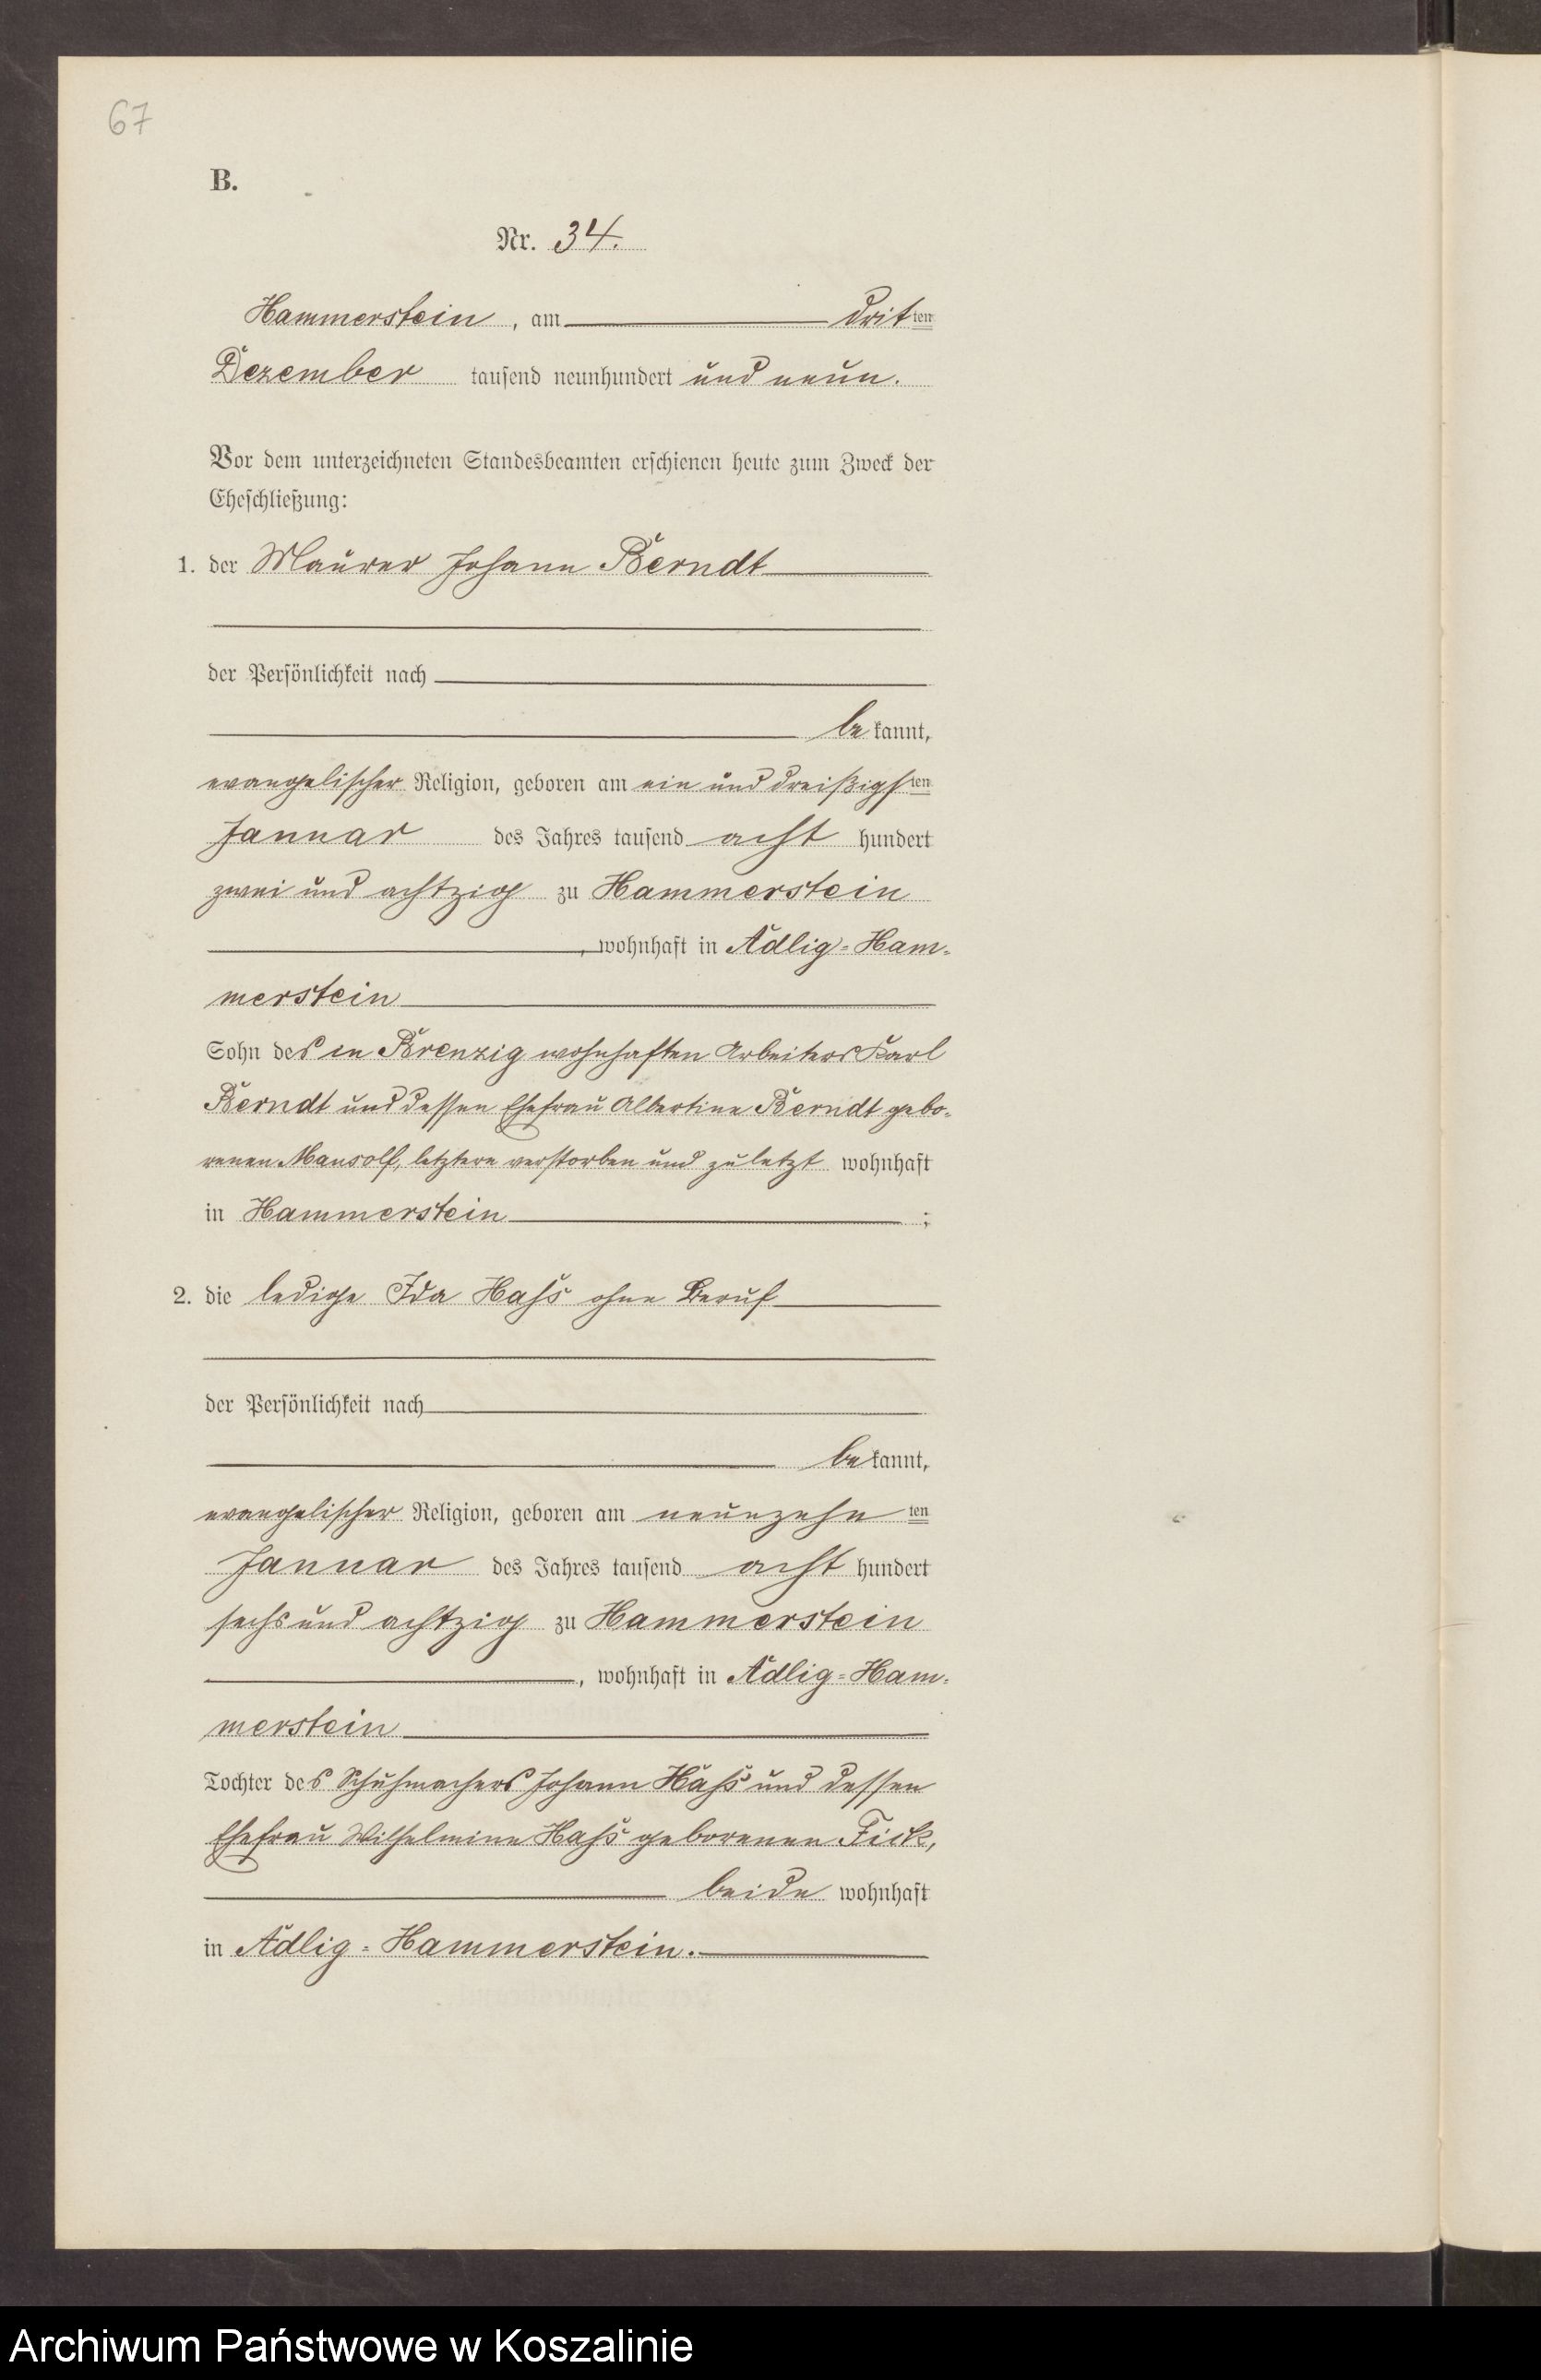 67
B.
Nr. 34.
Hammerstein, am dritten
Dezember tausend neunhundert und neun.
Vor dem unterzeichneten Standesbeamten erschienen heute zum Zweck der
Eheschließung:
1. der Maurer Johann Berndt
der Persönlichkeit nach
bekannt,
evangelischer Religion, geboren am ein und dreißigsten
Januar des Jahres tausend acht hundert
zwei und achtzig zu Hammerstein
, wohnhaft in Adlig-Ham-
merstein
Sohn des in Brenzig wohnhaften Arbeiters Karl
Berndt und dessen Ehefrau Albertine Berndt gebo-
renen Mansolf, letztere verstorben und zuletzt wohnhaft
in Hammerstein ;
2. die ledige Ida Hass ohne Beruf
der Persönlichkeit nach
bekannt,
evangelischer Religion, geboren am neunzehnten
Januar des Jahres tausend acht hundert
sechs und achtzig zu Hammerstein
, wohnhaft in Adlig-Ham-
merstein
Tochter des Schuhmachers Johann Hass und dessen
Ehefrau Wilhelmine Hass geborenen Fick,
beide wohnhaft
in Adlig-Hammerstein.
Archiwum Państwowe w Koszalinie